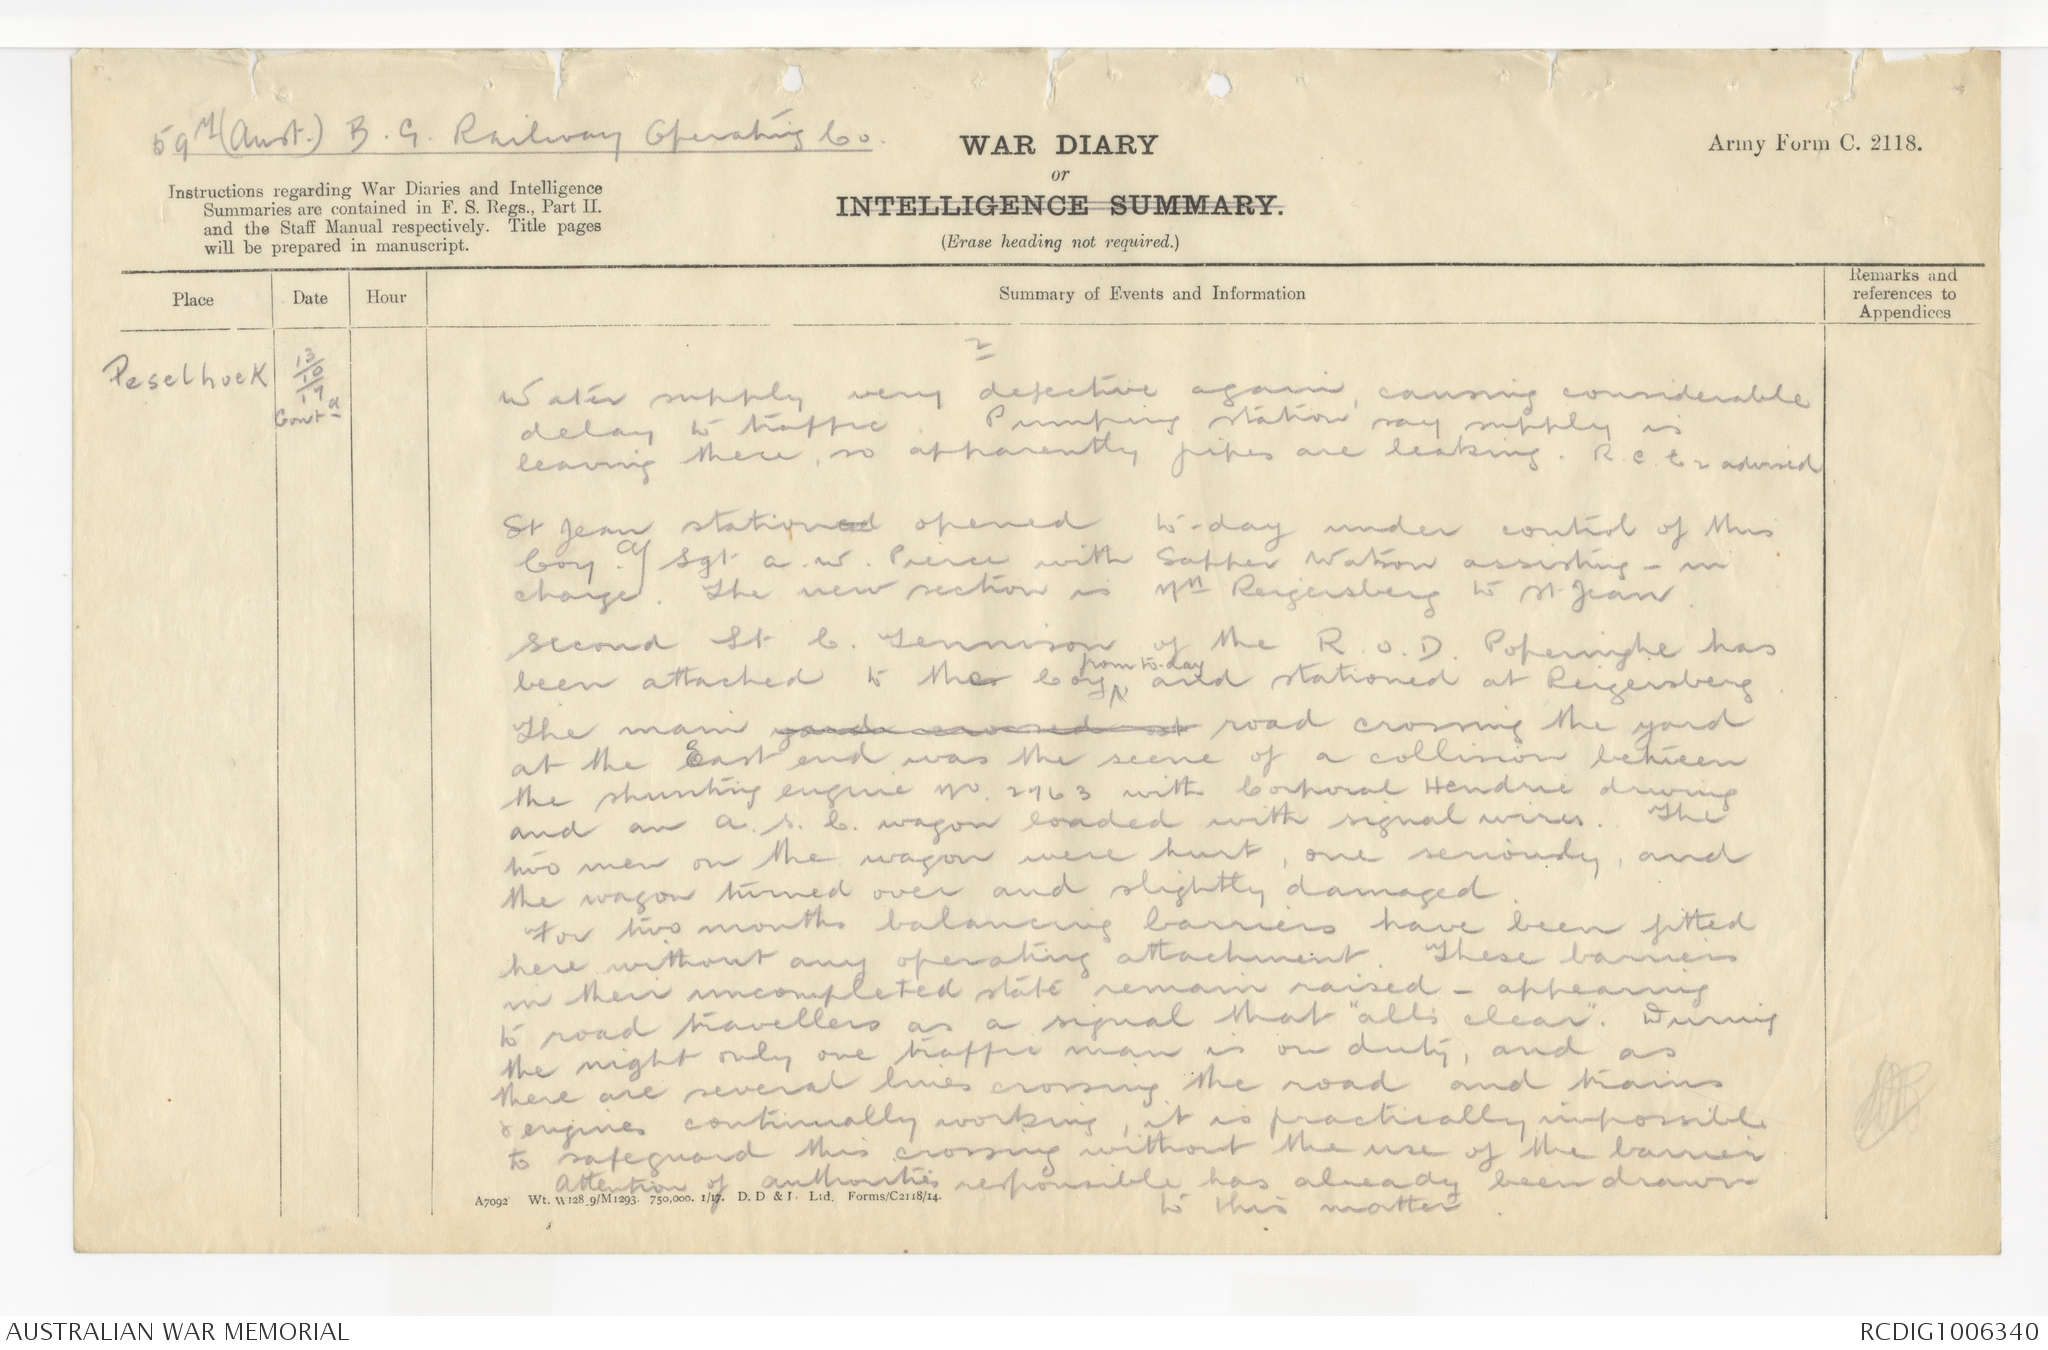 59th (Aust.) B. G. Railway Operating Co.
WAR DIARY
or
INTELLIGENCE SUMMARY.
(Erase heading not required.)
Army Form C. 2118.
Instructions regarding War Diaries and Intelligence
Summaries are contained in F. S. Regs., Part II.
and the Staff Manual respectively. Title pages
will be prepared in manuscript.
Place
Date
Hour
Summary of Events and Information
Remarks and
references to
Appendices
Peselhoek
13/10/17
Contd
2
Water supply very defective again, causing considerable
delay to traffic. Pumping station say supply is
leaving there, so apparently pipes are leaking. R.C.E 2 advised
St Jean stationed opened to-day under control of this
Coy. Sgt A. W. Pierce with Sapper Watson assisting - in
charge. The new section is Reigersberg to St Jean.
Second Lt C. Tennison of the R.O.D. Poperinghe has
from to-day
been attached to the Coy and stationed at Reigersberg.
The main yards crossed at road crossing the yard
at the East end was the scene of a collision between
the shunting engine No. 2763 with Corporal Hendrie driving
and an A.S.C. wagon loaded with signal wires. The
two men on the wagon were hurt, one seriously, and
the wagon turned over and slightly damaged.
For two months balancing barriers have been fitted
here without any operating attachment. These barriers
in their uncompleted state remain raised - appearing
to road travellers as a signal that "all's clear". During
the night only one traffic man is on duty, and as
there are several lines crossing the road and trains
& engines continually working, it is practically impossible
to safeguard this crossing without the use of the barrier
Attention of authorities responsible has already been drawn
to this matter.
A7092 Wt. W128.9/M1293. 750,000. 1/17. D. D & L. Ltd. Forms/C2118/14.
AUSTRALIAN WAR MEMORIAL
RCDIG1006340